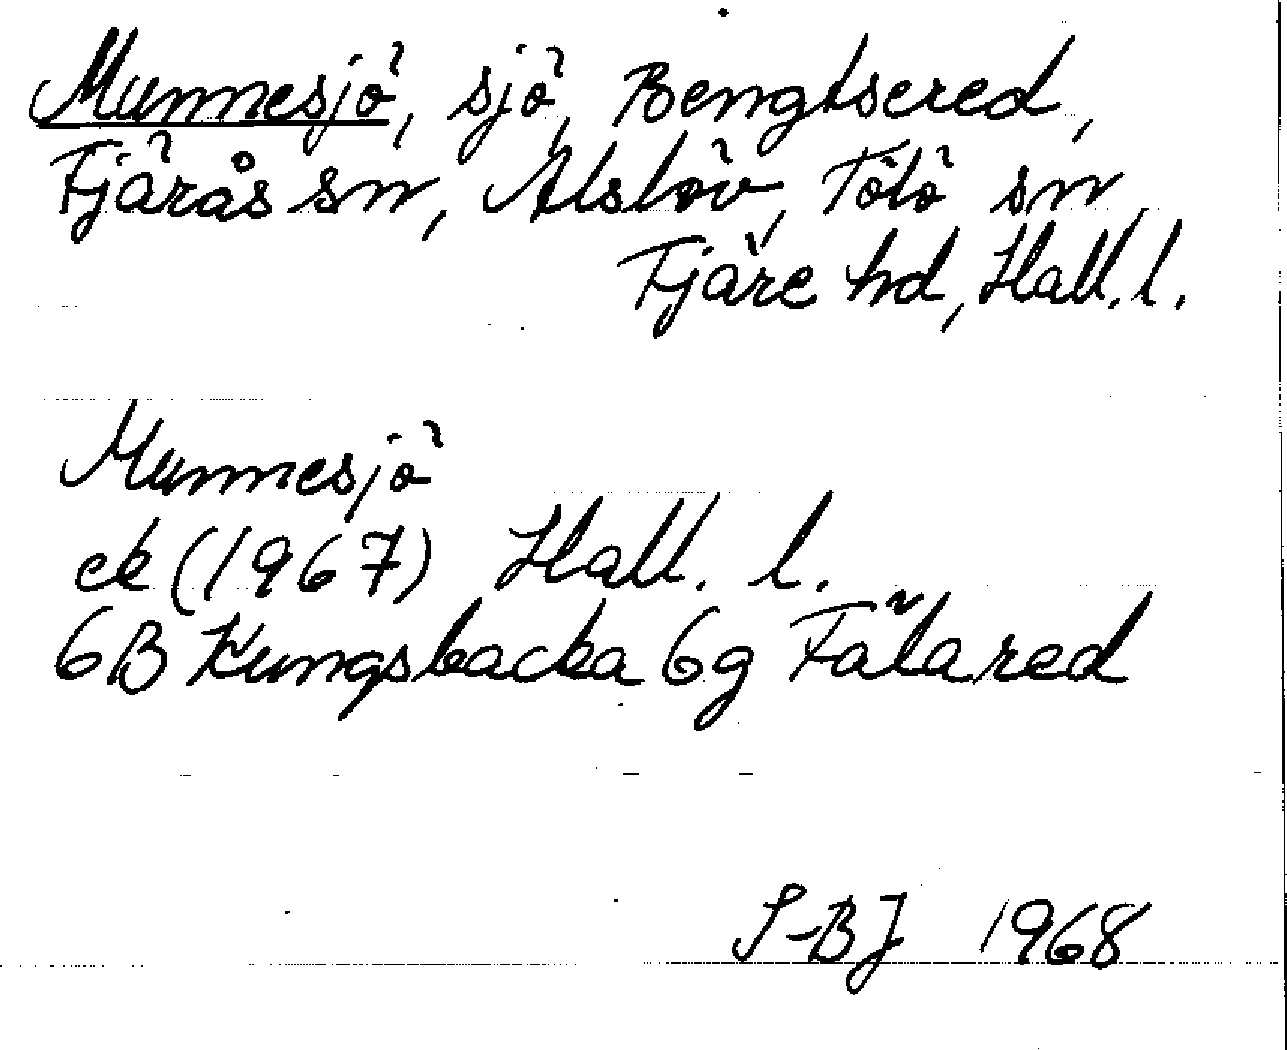 Munnesjö, sjö, Bengtsered,
Fjärås sn, Alslöv, Tölö sn
Fjäre hd, Hall. l.
Munnesjö
ek (1967) Hall. l.
6B Kungsbacka 6g Fälared
S-BJ 1968